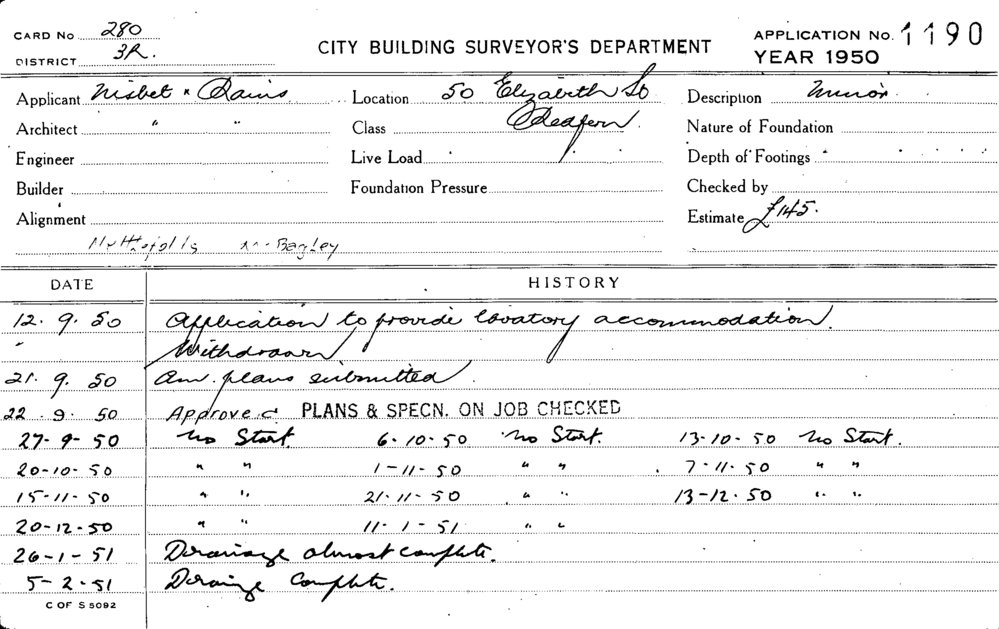 CARD No 280
DISTRICT 3R.
CITY BUILDING SURVEYOR'S DEPARTMENT
APPLICATION No. 1190
YEAR 1950
Applicant Nisbet & Rains Location 50 Elizabeth St Description Minor
Architect " " Class Redfern Nature of Foundation
Engineer Live Load Depth of Footings
Builder Foundation Pressure Checked by
Alignment Estimate £145.
Mr Bagley
DATE HISTORY
12. 9. 50 Application to provide lavatory accommodation.
" Withdrawn
21. 9. 50 Am. plans submitted
22. 9. 50 Approved PLANS & SPECN. ON JOB CHECKED
27-9-50 No Start. 6-10-50 No Start. 13-10-50 No Start.
20-10-50 " " 1-11-50 " " 7-11-50 " "
15-11-50 " " 21-11-50 " " 13-12-50 " "
20-12-50 " " 11-1-51 " "
26-1-51 Drainage almost complete.
5-2-51 Drainge Complete.
C OF S 5092